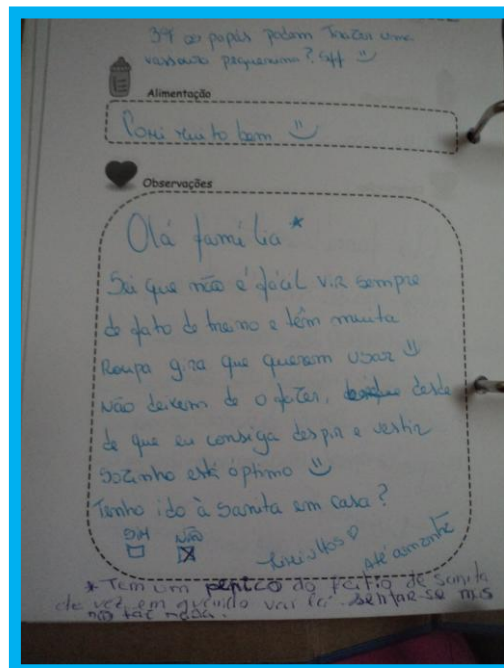 os papás podem trazer uma
vassoura pequenina? :)
Alimentação
Comi muito bem :)
Observações
Olá família *
Sei que não é fácil vir sempre
de fato de treino e têm muita
Roupa gira que querem usar :)
Não deixem de o fazer, desde
de que eu consiga despir e vestir
sozinho está óptimo :)
Tenho ido à sanita em casa?
SIM NÃO
☐ ☒
Beijinhos
Até amanhã
* Tem um penico do feitio de sanita
de vez em quando vai lá sentar-se mas
não faz nada.